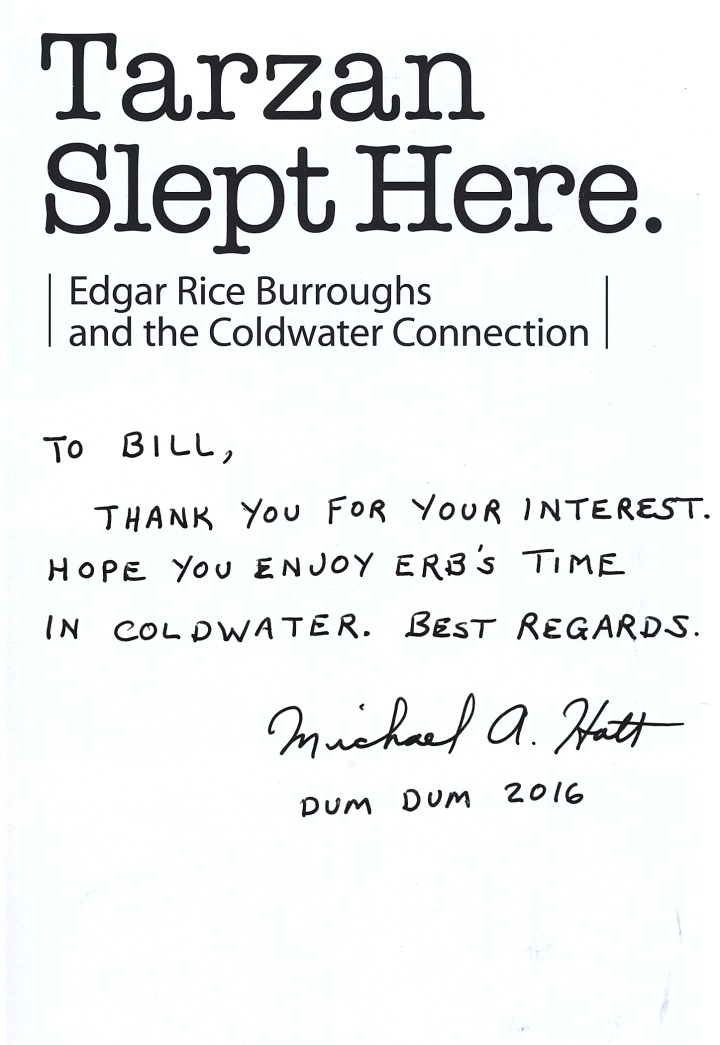 Tarzan
Slept Here.
Edgar Rice Burroughs
and the Coldwater Connection
TO BILL,
THANK YOU FOR YOUR INTEREST.
HOPE YOU ENJOY ERB'S TIME
IN COLDWATER. BEST REGARDS.
Michael A. Hatt
DUM DUM 2016